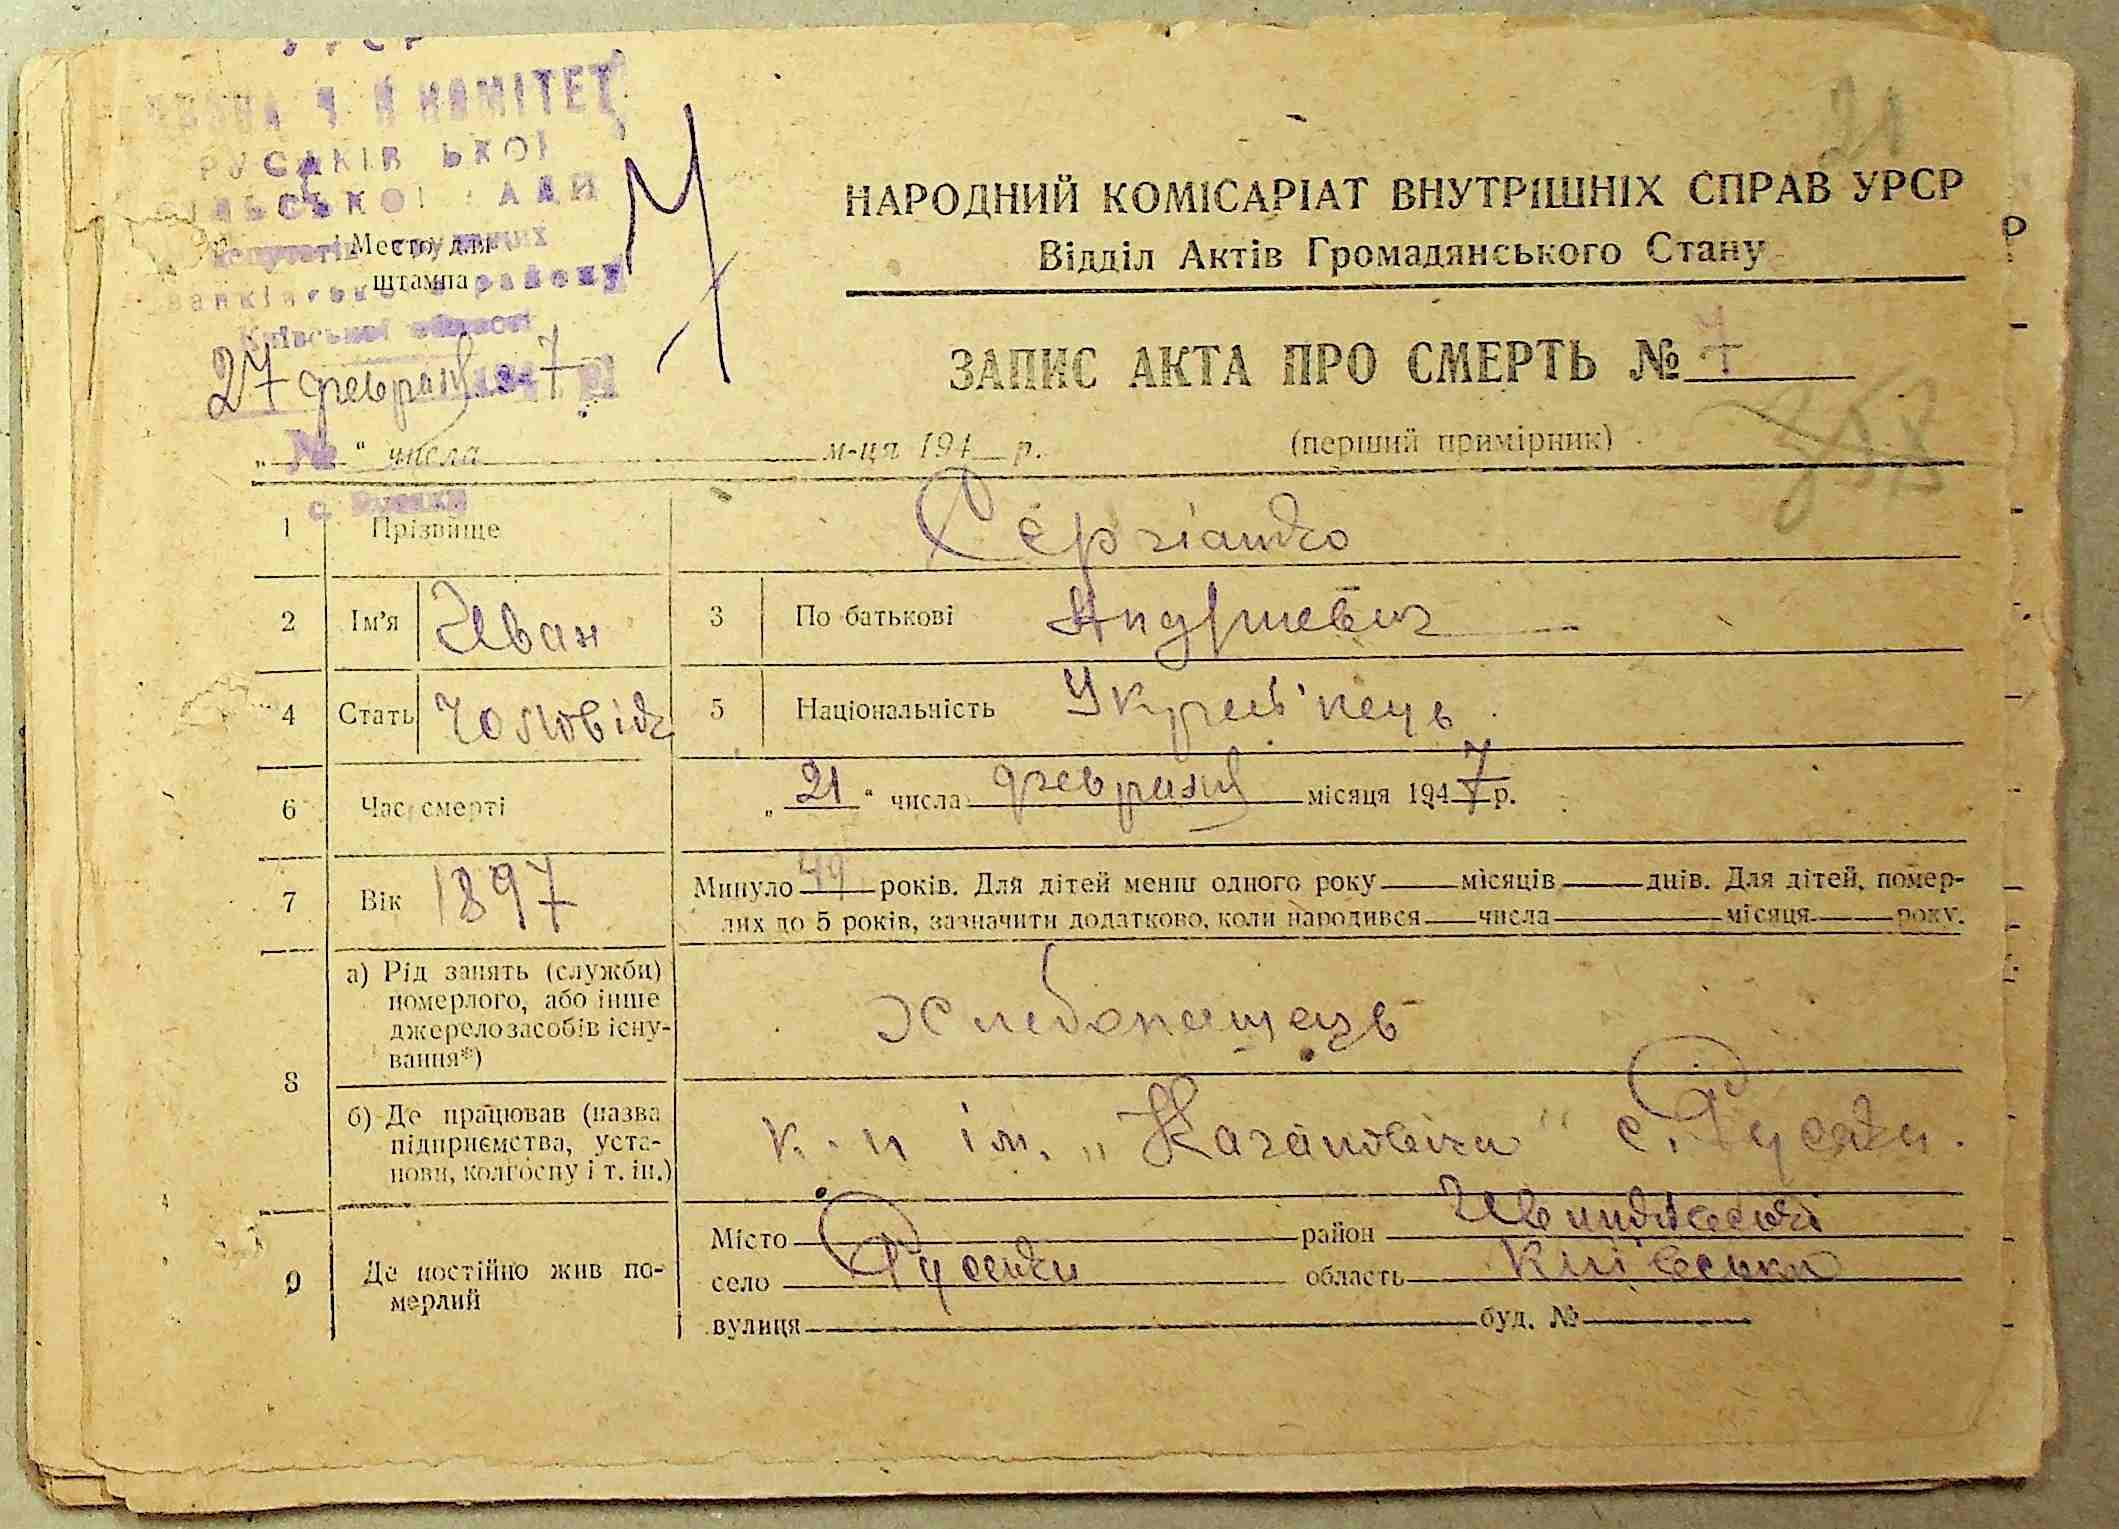 УРСР
КОМІТЕТ
РУСАКІВ ЬКОЇ
СІЛЬСЬКОЇ РАДИ
депутатів трудящих
Место для
штампа
ванківського району
Київської області
27 февраля 1947 р.
7
21
НАРОДНИЙ КОМІСАРІАТ ВНУТРІШНІХ СПРАВ УРСР
Відділ Актів Громадянського Стану
ЗАПИС АКТА ПРО СМЕРТЬ № 7
„ № “ числа м-ця 194 р. (перший примірник)
с. Русаки
1 Прізвище Сергіенко
2 Ім’я Иван 3 По батькові Андриевич
4 Стать Чоловіч 5 Національність Украї'нець
6 Час смерті „ 21 “ числа февраля місяця 1947 р.
7 Вік 1897 Минуло 49 років. Для дітей менш одного року місяців днів. Для дітей, помер-
лих до 5 років, зазначити додатково, коли народився числа місяця року.
8 а) Рід занять (служби)
померлого, або інше
джерело засобів існу-
вання*)
Хлебопашець
б) Де працював (назва
підприємства, уста-
нови, колгоспу і т. ін.)
к-п ім. „Кагановича“ с. Русаки.
9 Де постійно жив по-
мерлий
Місто район Иванківські
село Русаки область Київська
вулиця буд. №